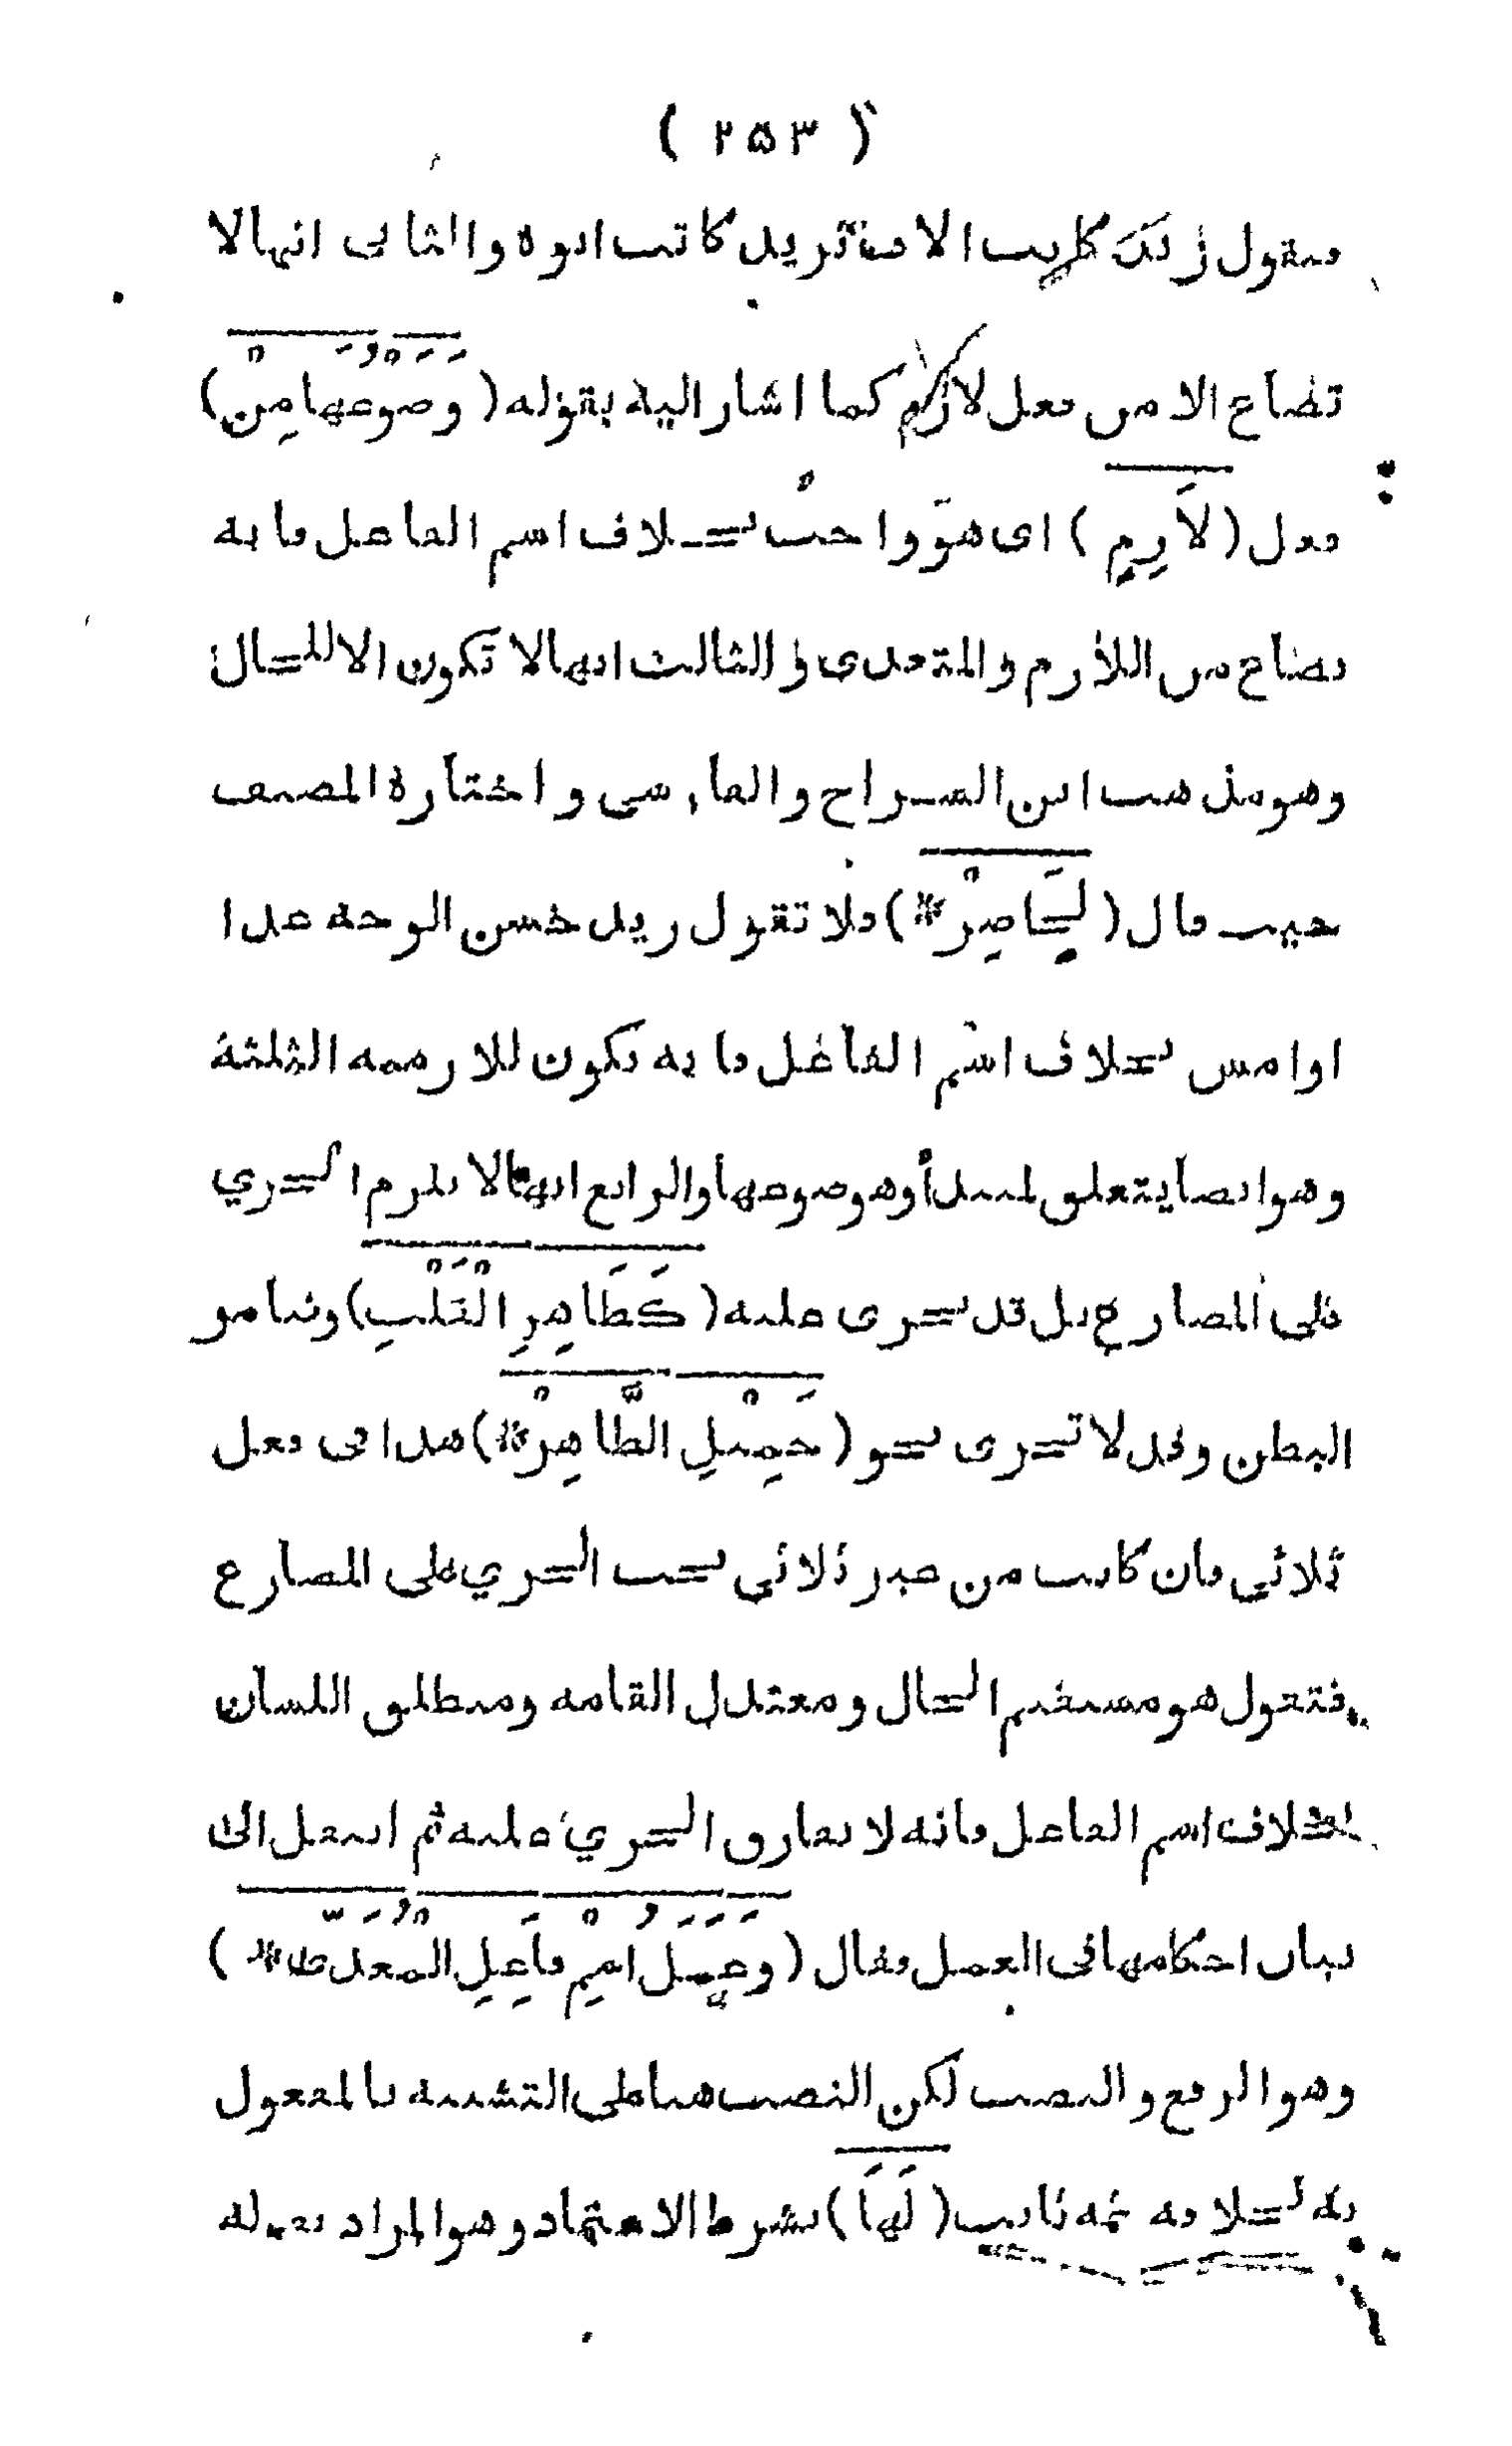 ( ۲۵۳ )
فتقول زيد كاتب الاب زيد كاتب ابوه والثاني انها لا
تصاغ الا من فعل لازم كما اشار اليه بقوله ( وَصَوْغُهَا مِنْ )
فعل ( لَازِمٍ ) اى هو واجب بخلاف اسم الفاعل فانه
يصاغ من اللازم والمتعدى والثالث انها لا تكون الا للحال
وهو مذهب ابن السراج والفارسي واختاره المصنف
حيث قال ( لِحَاضِرْ * ) فلا تقول زيد حسن الوجه غدا
او امس بخلاف اسم الفاعل فانه يكون للازمنه الثلثة
وهو ايضا يتعلق لمبتدأ وهو صوغها والرابع انها لا يلزم الجري
على المضارع بل قد يجرى عليه ( كَطَاهِرِ الْقَلْبِ ) وضامر
البطن وقد لا تجرى نحو ( جَمِيْلِ الظَّاهِرْ * ) هذا فى فعل
ثلاثي فان كانت من غير ثلاثي يجب الجري على المضارع
فتقول هو مستقيم الحال ومعتدل القامه ومنطلق اللسان
بخلاف اسم الفاعل فانه لا يفارق الجري عليه ثم انتقل الى
بيان احكامها فى العمل فقال ( وَعَمَلُ اسْمِ فَاعِلِ الْمُعَدَّى * )
وهو الرفع والنصب لكن النصب هنا على التشبيه بالمفعول
به بخلافه ثمه ثابت ( لَهَا ) بشرط الاعتماد وهو المراد بقوله